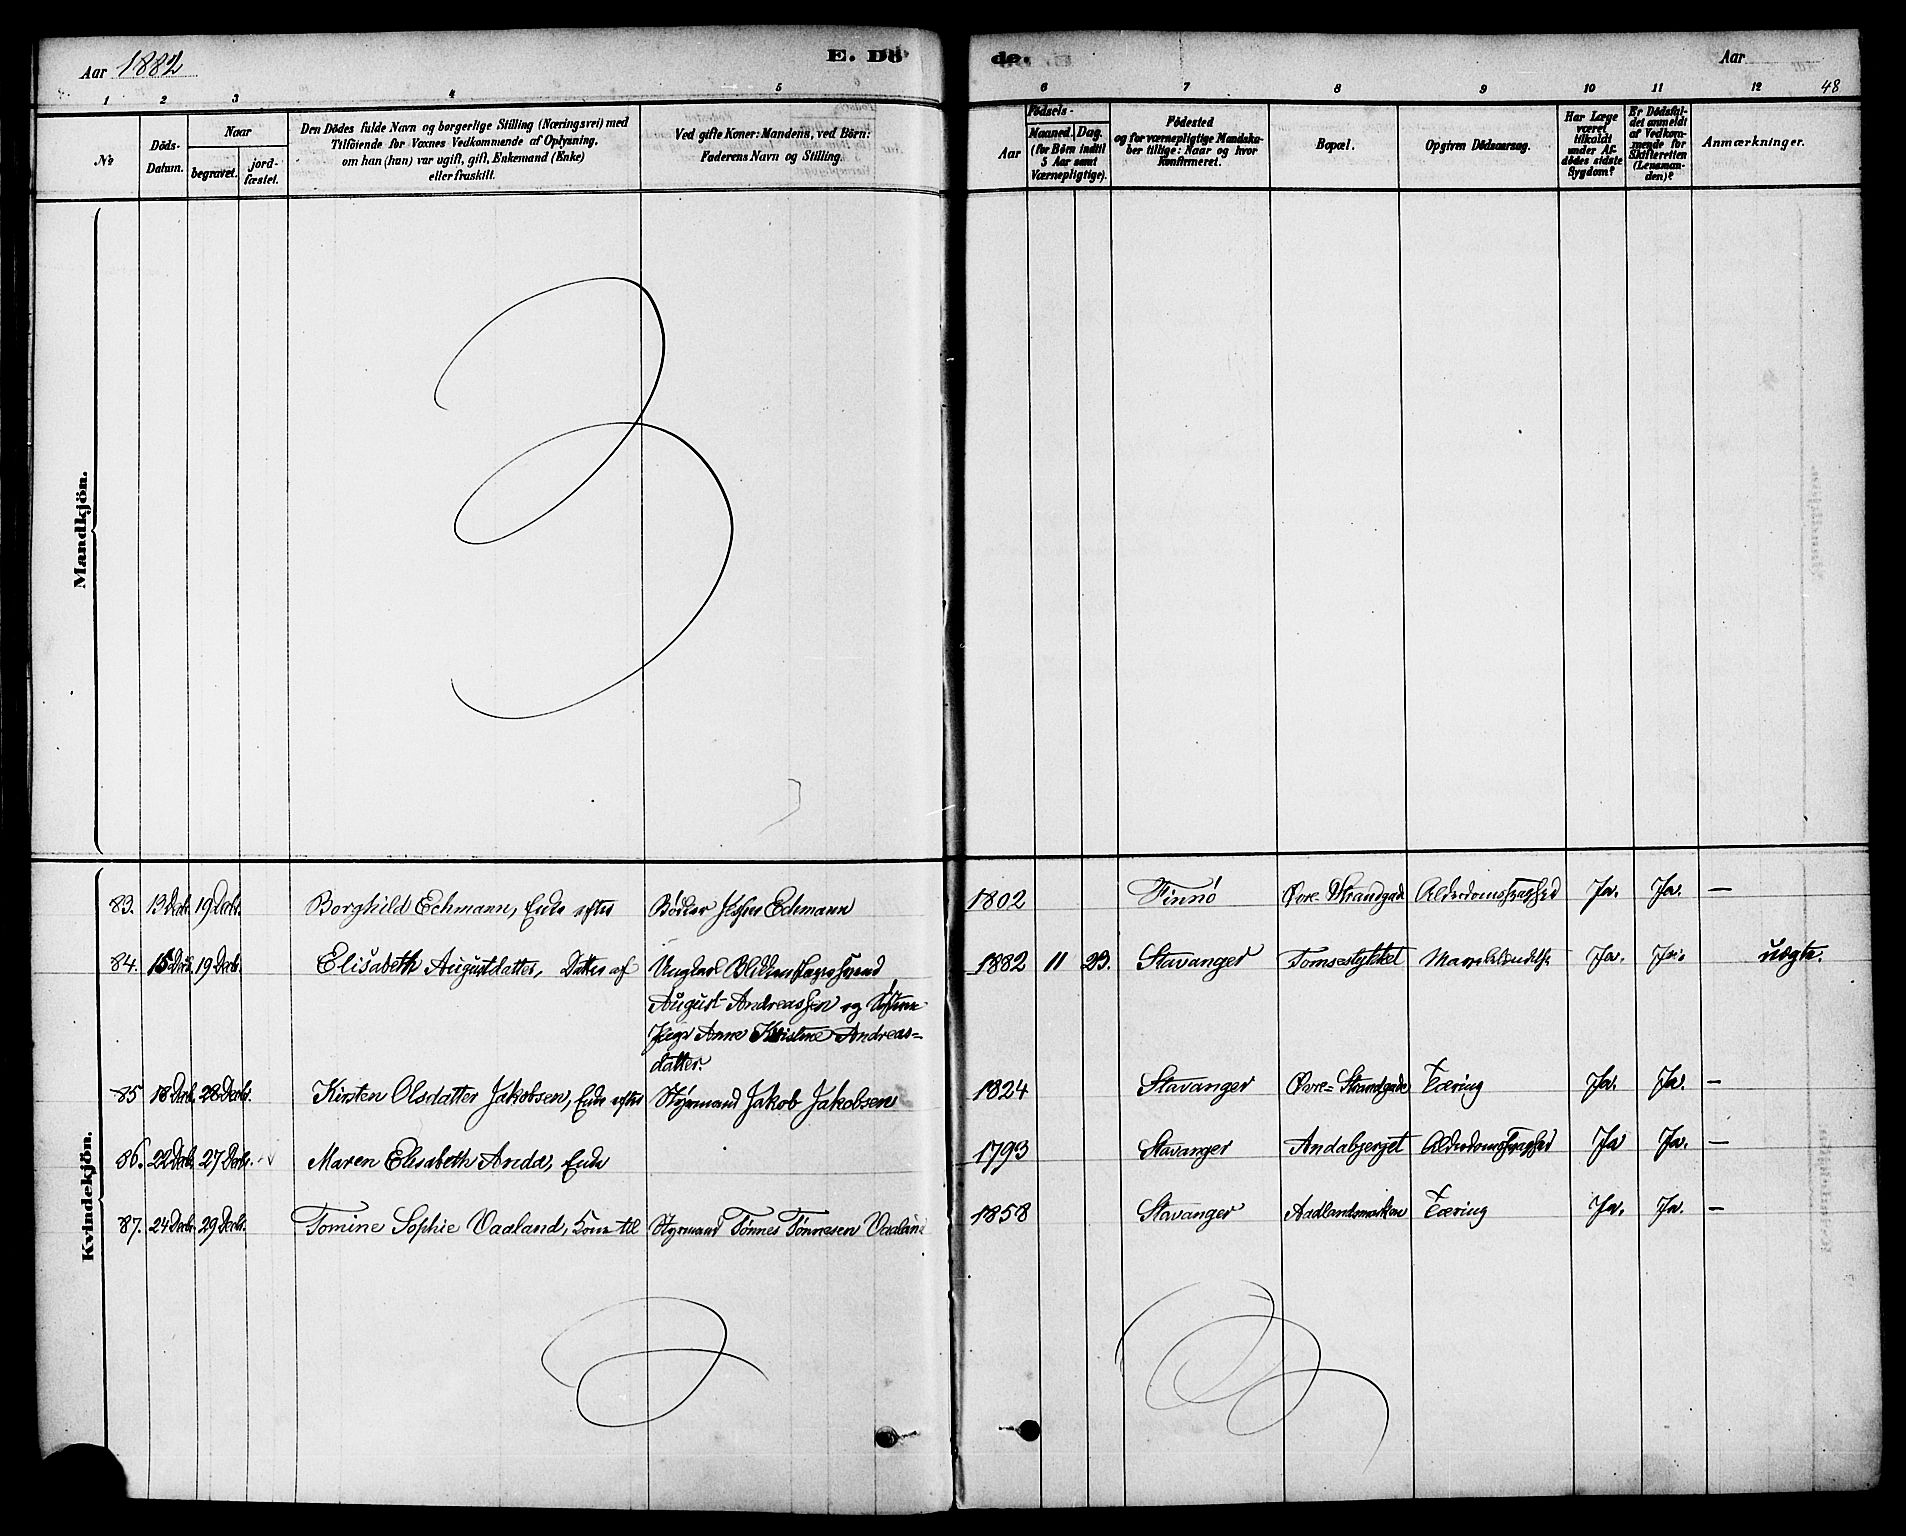 Aar 1882
E. Dö
de.
Aar
1 2 3 4 5
6 7 8 9 10 11 12 48
No
Döds-
Datum.
Naar
begravet.
jord-
fæstet.
Den Dödes fulde Navn og borgerlige Stilling (Næringsvei) med
Tilföiende for Voxnes Vedkommende af Oplysning,
om han (hun) var ugift, gift, Enkemand (Enke)
eller fraskilt.
Ved gifte Koner: Mandens, ved Börn:
Faderens Navn og Stilling.
Födsels-
Aar
Maaned. Dag.
(for Börn indtil
5 Aar samt
Værnepligtige).
Födested
og for værnepligtige Mandska-
ber tillige: Naar og hvor
Konfirmeret.
Bopæl.
Opgiven Dödsaarsag.
Har Læge
været
tilkaldt
under Af-
dödes sidste
Sygdom?
Er Dödsfal-
det anmeldt
af Vedkom-
mende for
Skifteretten
(Lensman-
den)?
Anmærkninger.
Mandkjön.
Kvindekjön.
83. 13 Decb. 19 Decb. Borghild Echmann, Enke efter Bödker Echmann 1802 Finnö Øvre Strandgade Alderdomssvaghed Ja. Ja. —
84. 15 Decb. 19 Decb. Elisabeth Augustdatter, Datter af Ungkarl 1882 11 23. Stavanger Ja. Ja. uægte.
August Andreassen og
Pige Anne Kristine Andreas=
datter.
85 18 Decb. 28 Decbr. Kirsten Olsdatter Jakobsen, Enke efter Styrmand Jakob Jakobsen 1824 Stavanger Øvre= Strandgade Tæring Ja. Ja. —
86. 22 Decb. 27 Decbr. Maren Elisabeth Anda, Enke 1793 Stavanger Andabjerget Alderdomssvaghed Ja Ja. —
87. 24 Decb. 29 Decbr. Tomine Sophie Vaaland, Kone til Styrmand Tönnes Tönnesen Vaaland 1858 Stavanger Aadlandsmarken Tæring Ja. Ja. —